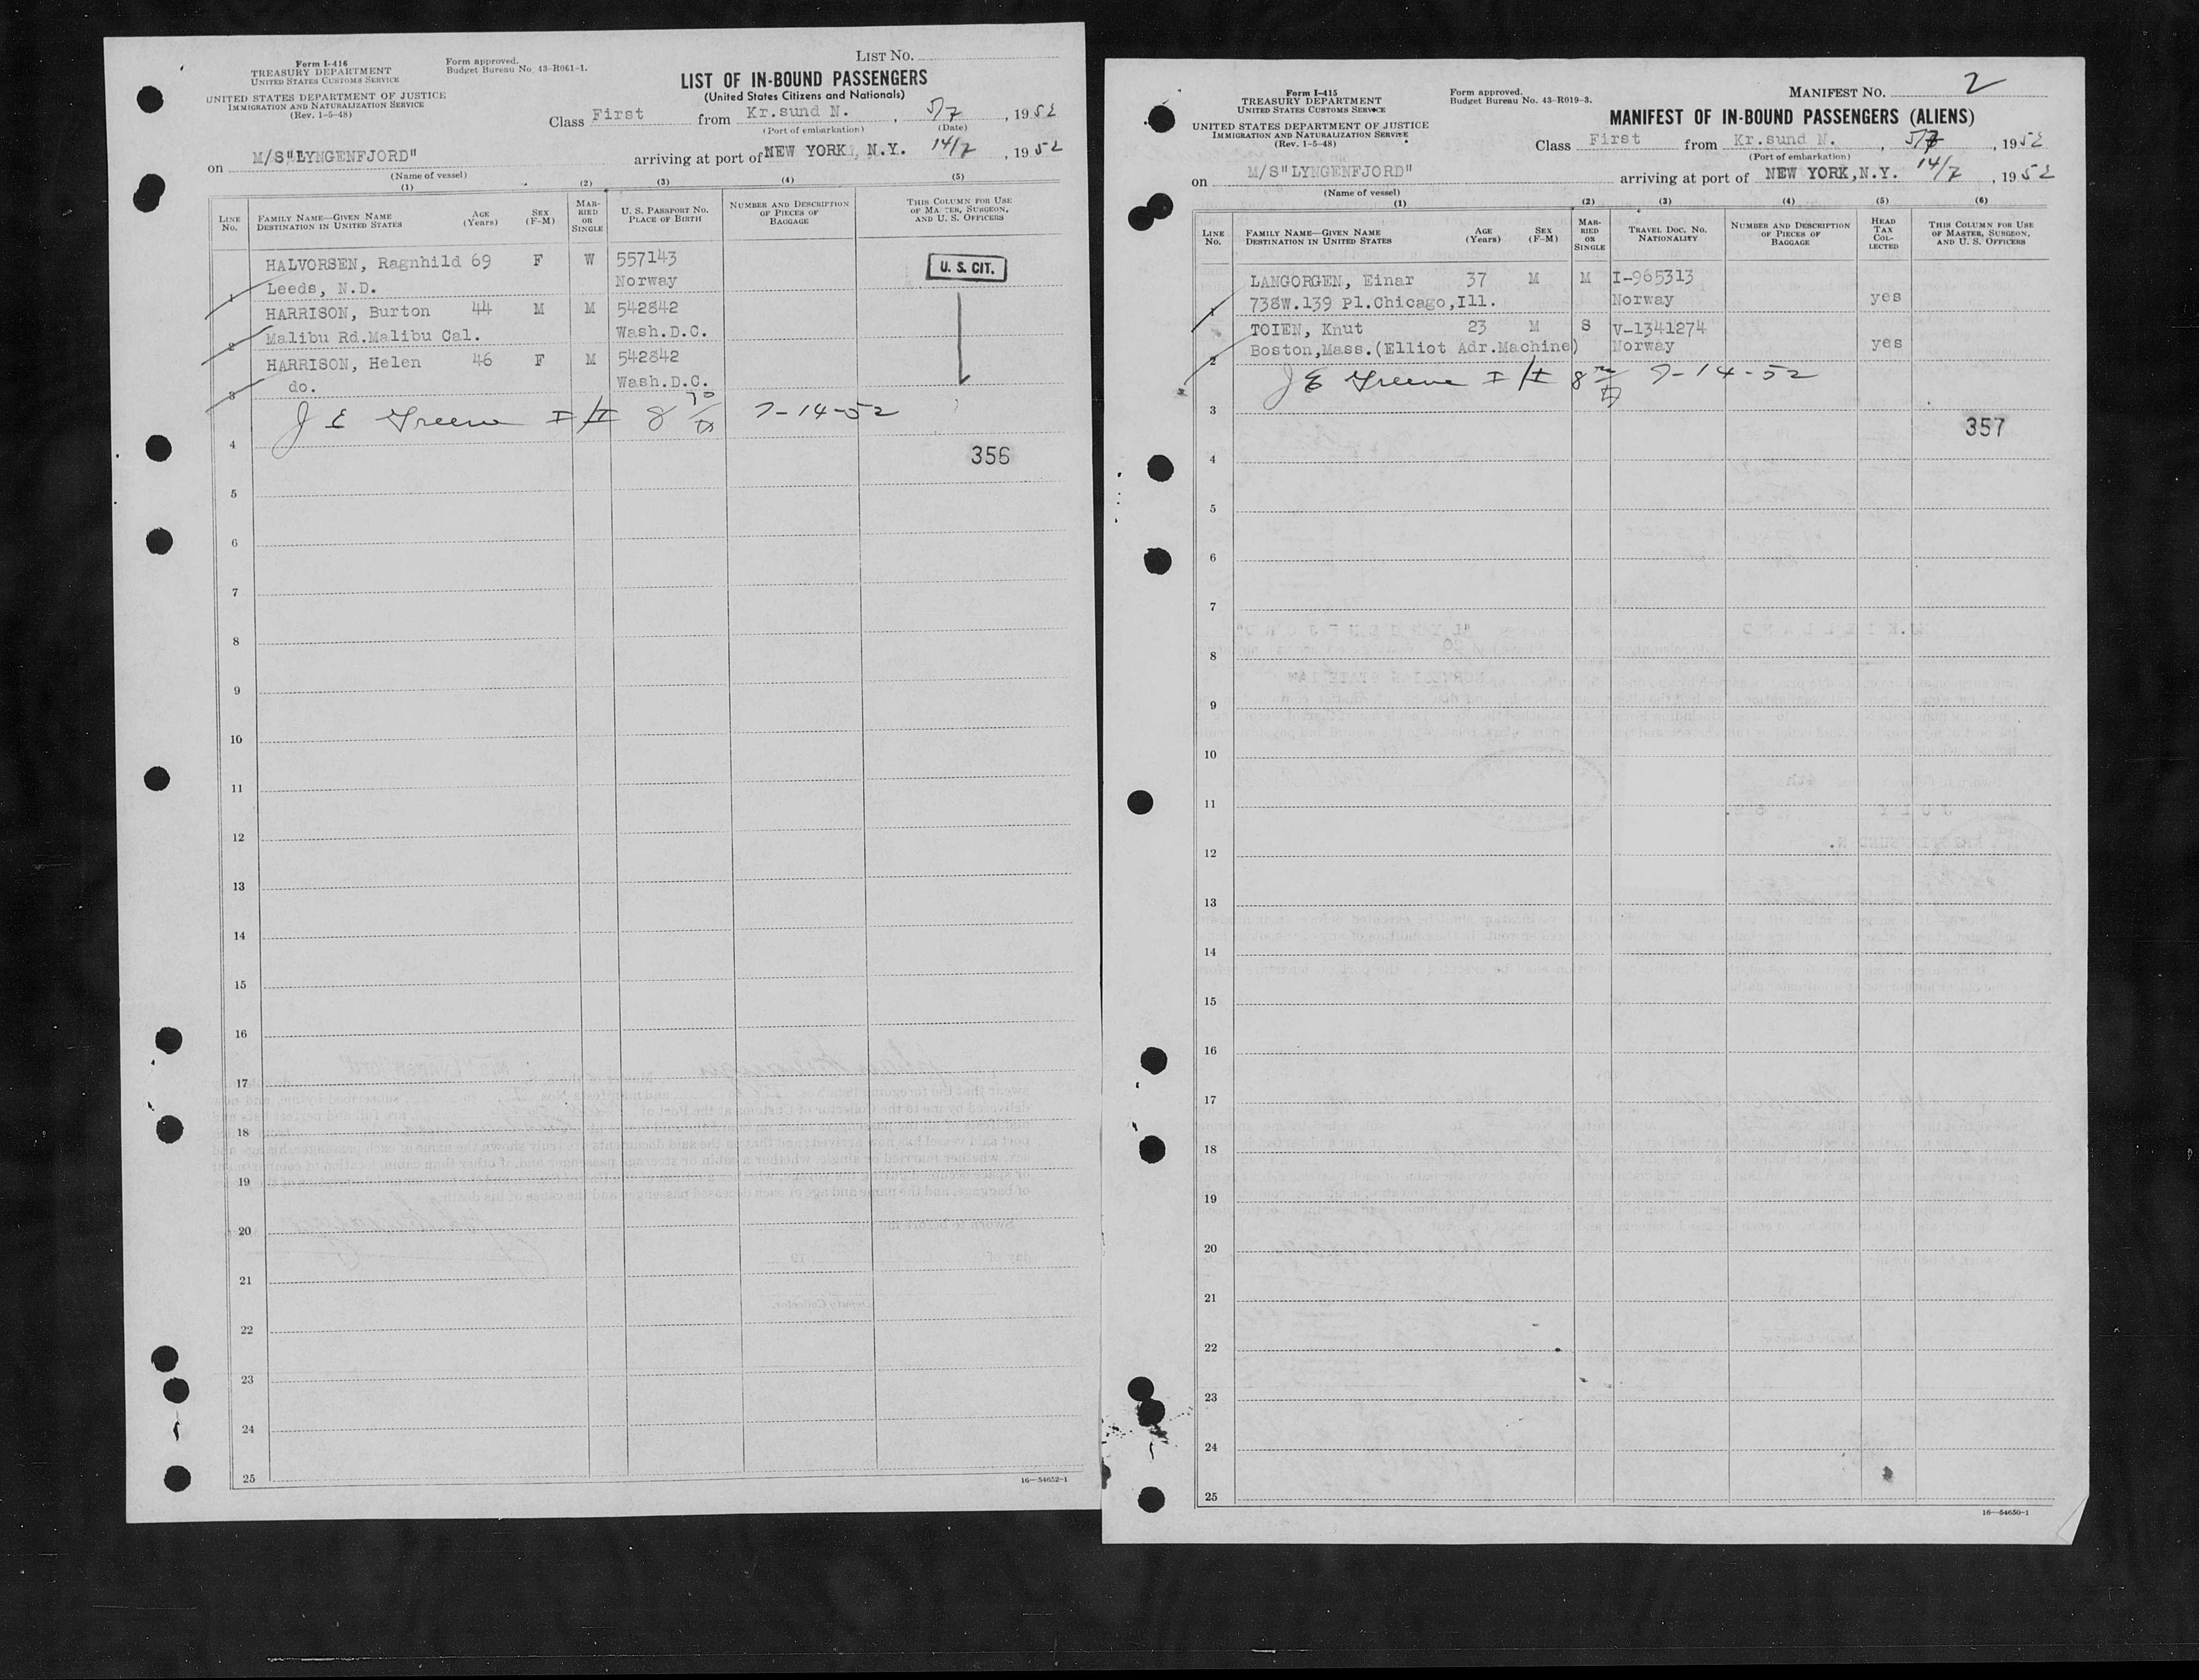 Form I-416
TREASURY DEPARTMENT
UNITED STATES CUSTOMS SERVICE
UNITED STATES DEPARTMENT OF JUSTICE
IMMIGRATION AND NATURALIZATION SERVICE
(Rev. 1-5-48)
Form approved.
Budget Bureau No. 43-R061-1.
LIST NO.
LIST OF IN-BOUND PASSENGERS
(United States Citizens and Nationals)
Class First from Kr.sund N. , 5/7 , 1952
(Port of embarkation) (Date)
on M/S"LYNGENFJORD" arriving at port of NEW YORK, N.Y. 14/7 , 1952
(Name of vessel)
(1) (2) (3) (4) (5)
LINE NO. FAMILY NAME—GIVEN NAME DESTINATION IN UNITED STATES AGE (Years) SEX (F-M) MARRIED OR SINGLE U. S. PASSPORT NO. PLACE OF BIRTH NUMBER AND DESCRIPTION OF PIECES OF BAGGAGE THIS COLUMN FOR USE OF MASTER, SURGEON, AND U. S. OFFICERS
HALVORSEN, Ragnhild 69 F W 557143 U. S. CIT.
1 Leeds, N.D. Norway
HARRISON, Burton 44 M M 542842
2 Malibu Rd.Malibu Cal. Wash.D.C.
HARRISON, Helen 46 F M 542842
3 do. Wash.D.C.
J E Greene I/I 8 7-14-52
4
356
5
6
7
8
9
10
11
12
13
14
15
16
17
18
19
20
21
22
23
24
25
16—54652-1
Form I-415
TREASURY DEPARTMENT
UNITED STATES CUSTOMS SERVICE
UNITED STATES DEPARTMENT OF JUSTICE
IMMIGRATION AND NATURALIZATION SERVICE
(Rev. 1-5-48)
Form approved.
Budget Bureau No. 43-R019-3.
MANIFEST NO. 2
MANIFEST OF IN-BOUND PASSENGERS (ALIENS)
Class First from Kr.sund N. , 5/7 , 1952
(Port of embarkation)
on M/S"LYNGENFJORD" arriving at port of NEW YORK,N.Y. 14/7 , 1952
(Name of vessel)
(1) (2) (3) (4) (5) (6)
LINE NO. FAMILY NAME—GIVEN NAME DESTINATION IN UNITED STATES AGE (Years) SEX (F-M) MARRIED OR SINGLE TRAVEL DOC. NO. NATIONALITY NUMBER AND DESCRIPTION OF PIECES OF BAGGAGE HEAD TAX COLLECTED THIS COLUMN FOR USE OF MASTER, SURGEON, AND U. S. OFFICERS
LANGORGEN, Einar 37 M M I-965313
1 738W.139 Pl.Chicago,Ill. Norway yes
TOIEN, Knut 23 M S V-1341274
2 Boston,Mass.(Elliot Adr.Machine) Norway yes
J E Greene I/I 8 7-14-52
3
357
4
5
6
7
8
9
10
11
12
13
14
15
16
17
18
19
20
21
22
23
24
25
16—54650-1